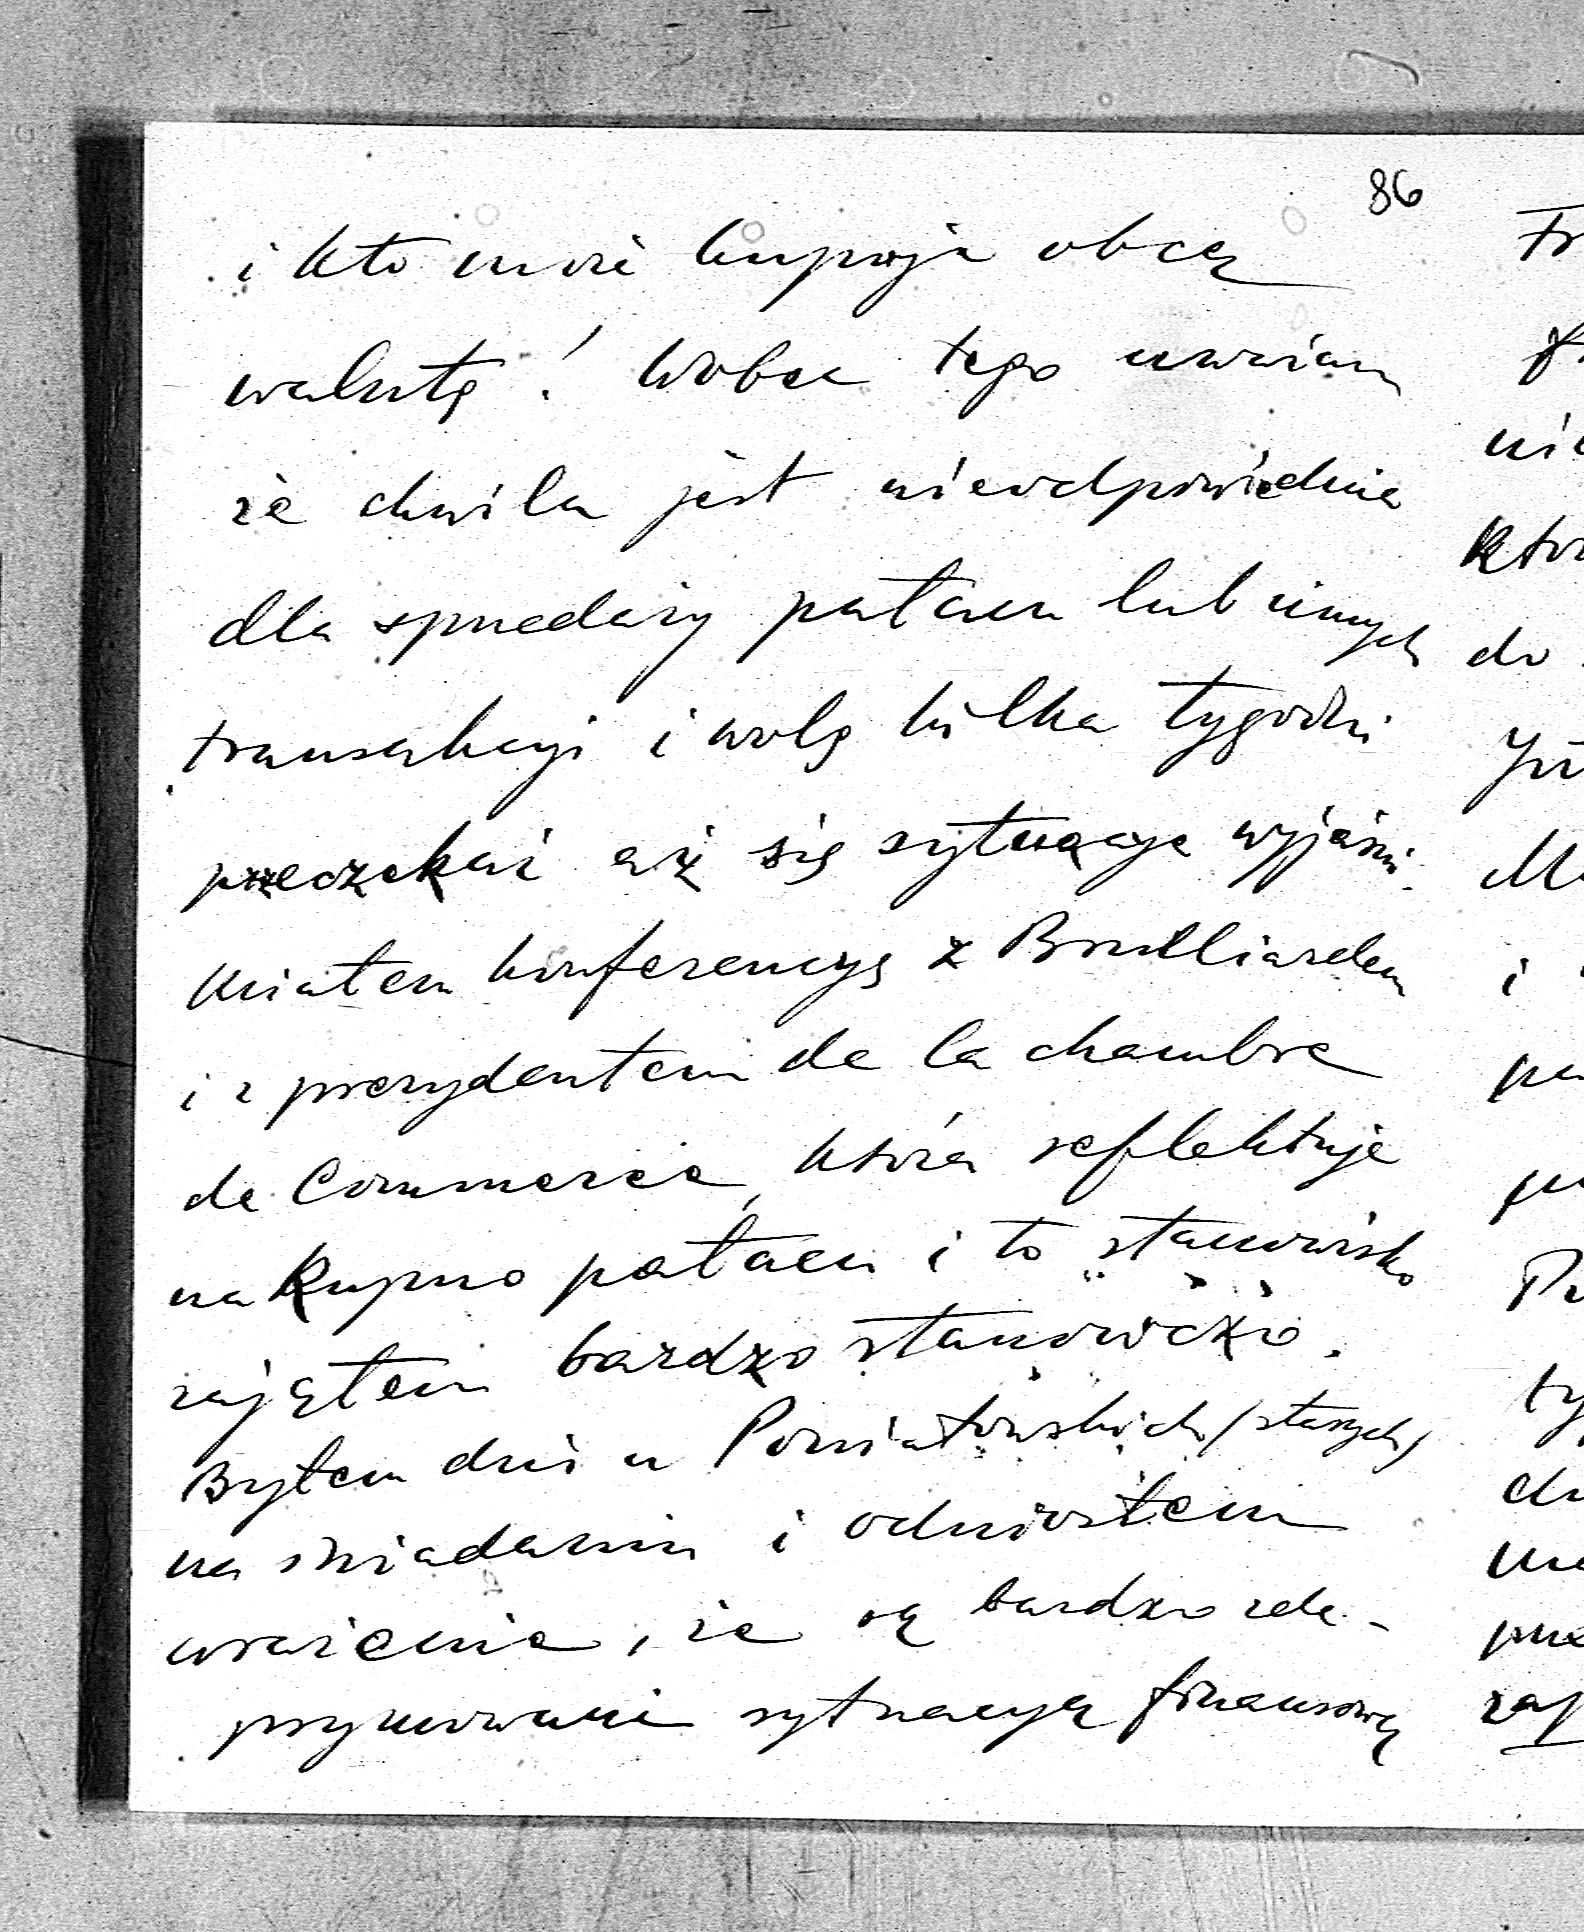 86
i kto może kupuje obcą
walutę! Wobec tego uważam
że chwila jest nieodpowiednia
dla sprzedaży pałacu lub innych
transakcyi i wolę kilka tygodni
przeczekać aż się sytuacya wyjaśni.
Miałem konferencyę z Brulliardem
i z prezydentem de la chambre
de Commerce, która reflektuje
na kupno pałacu i to stanowisko
zająłem bardzo stanowczo.
Byłem dziś u Poniatowskich /starych/
na śniadaniu i odniosłem
wrażenie, że są bardzo zde-
prymowani sytuacyą finansową